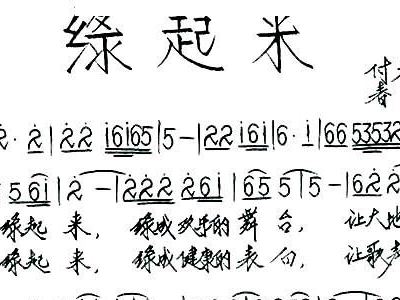 绿起来
付
春
2· 2 | 22 16165 | 5 - | 22 161 | 6· 1 | 66 53532
5 61 | 2 - | 222 261 | 65 5 | 5 - | 622
绿起 来, 绿成欢乐的 舞 台, 让大地
绿起 来, 绿成健康的 表 白, 让歌声